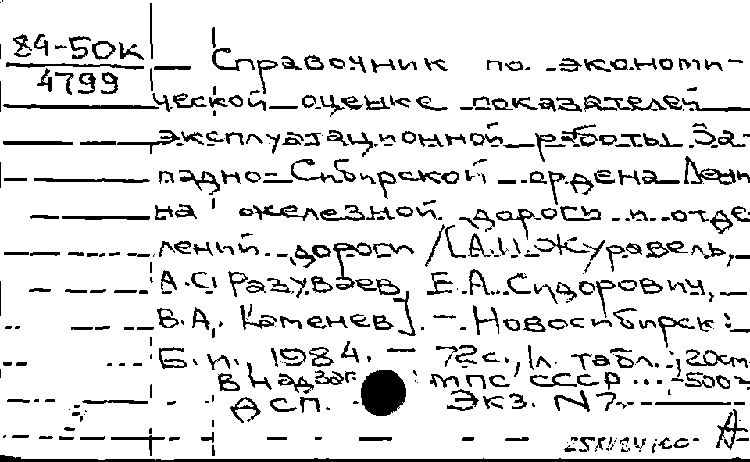 84-50к
4799
Справочник по экономи-
ческой оценке показателей
эксплуатационной работы За-
падно-Сибирской ордена Лени
на железной дороги и отде
лений дороги /[А.И. Журавель,
А.С. Разуваев, Е.А. Сидорович,
В.А. Каменев]. - Новосибирск:
Б.и., 1984. - 72с., 1л. табл.; 20см
В надзаг. МПС СССР ... - 500э
ДСП. Экз. N7.
А